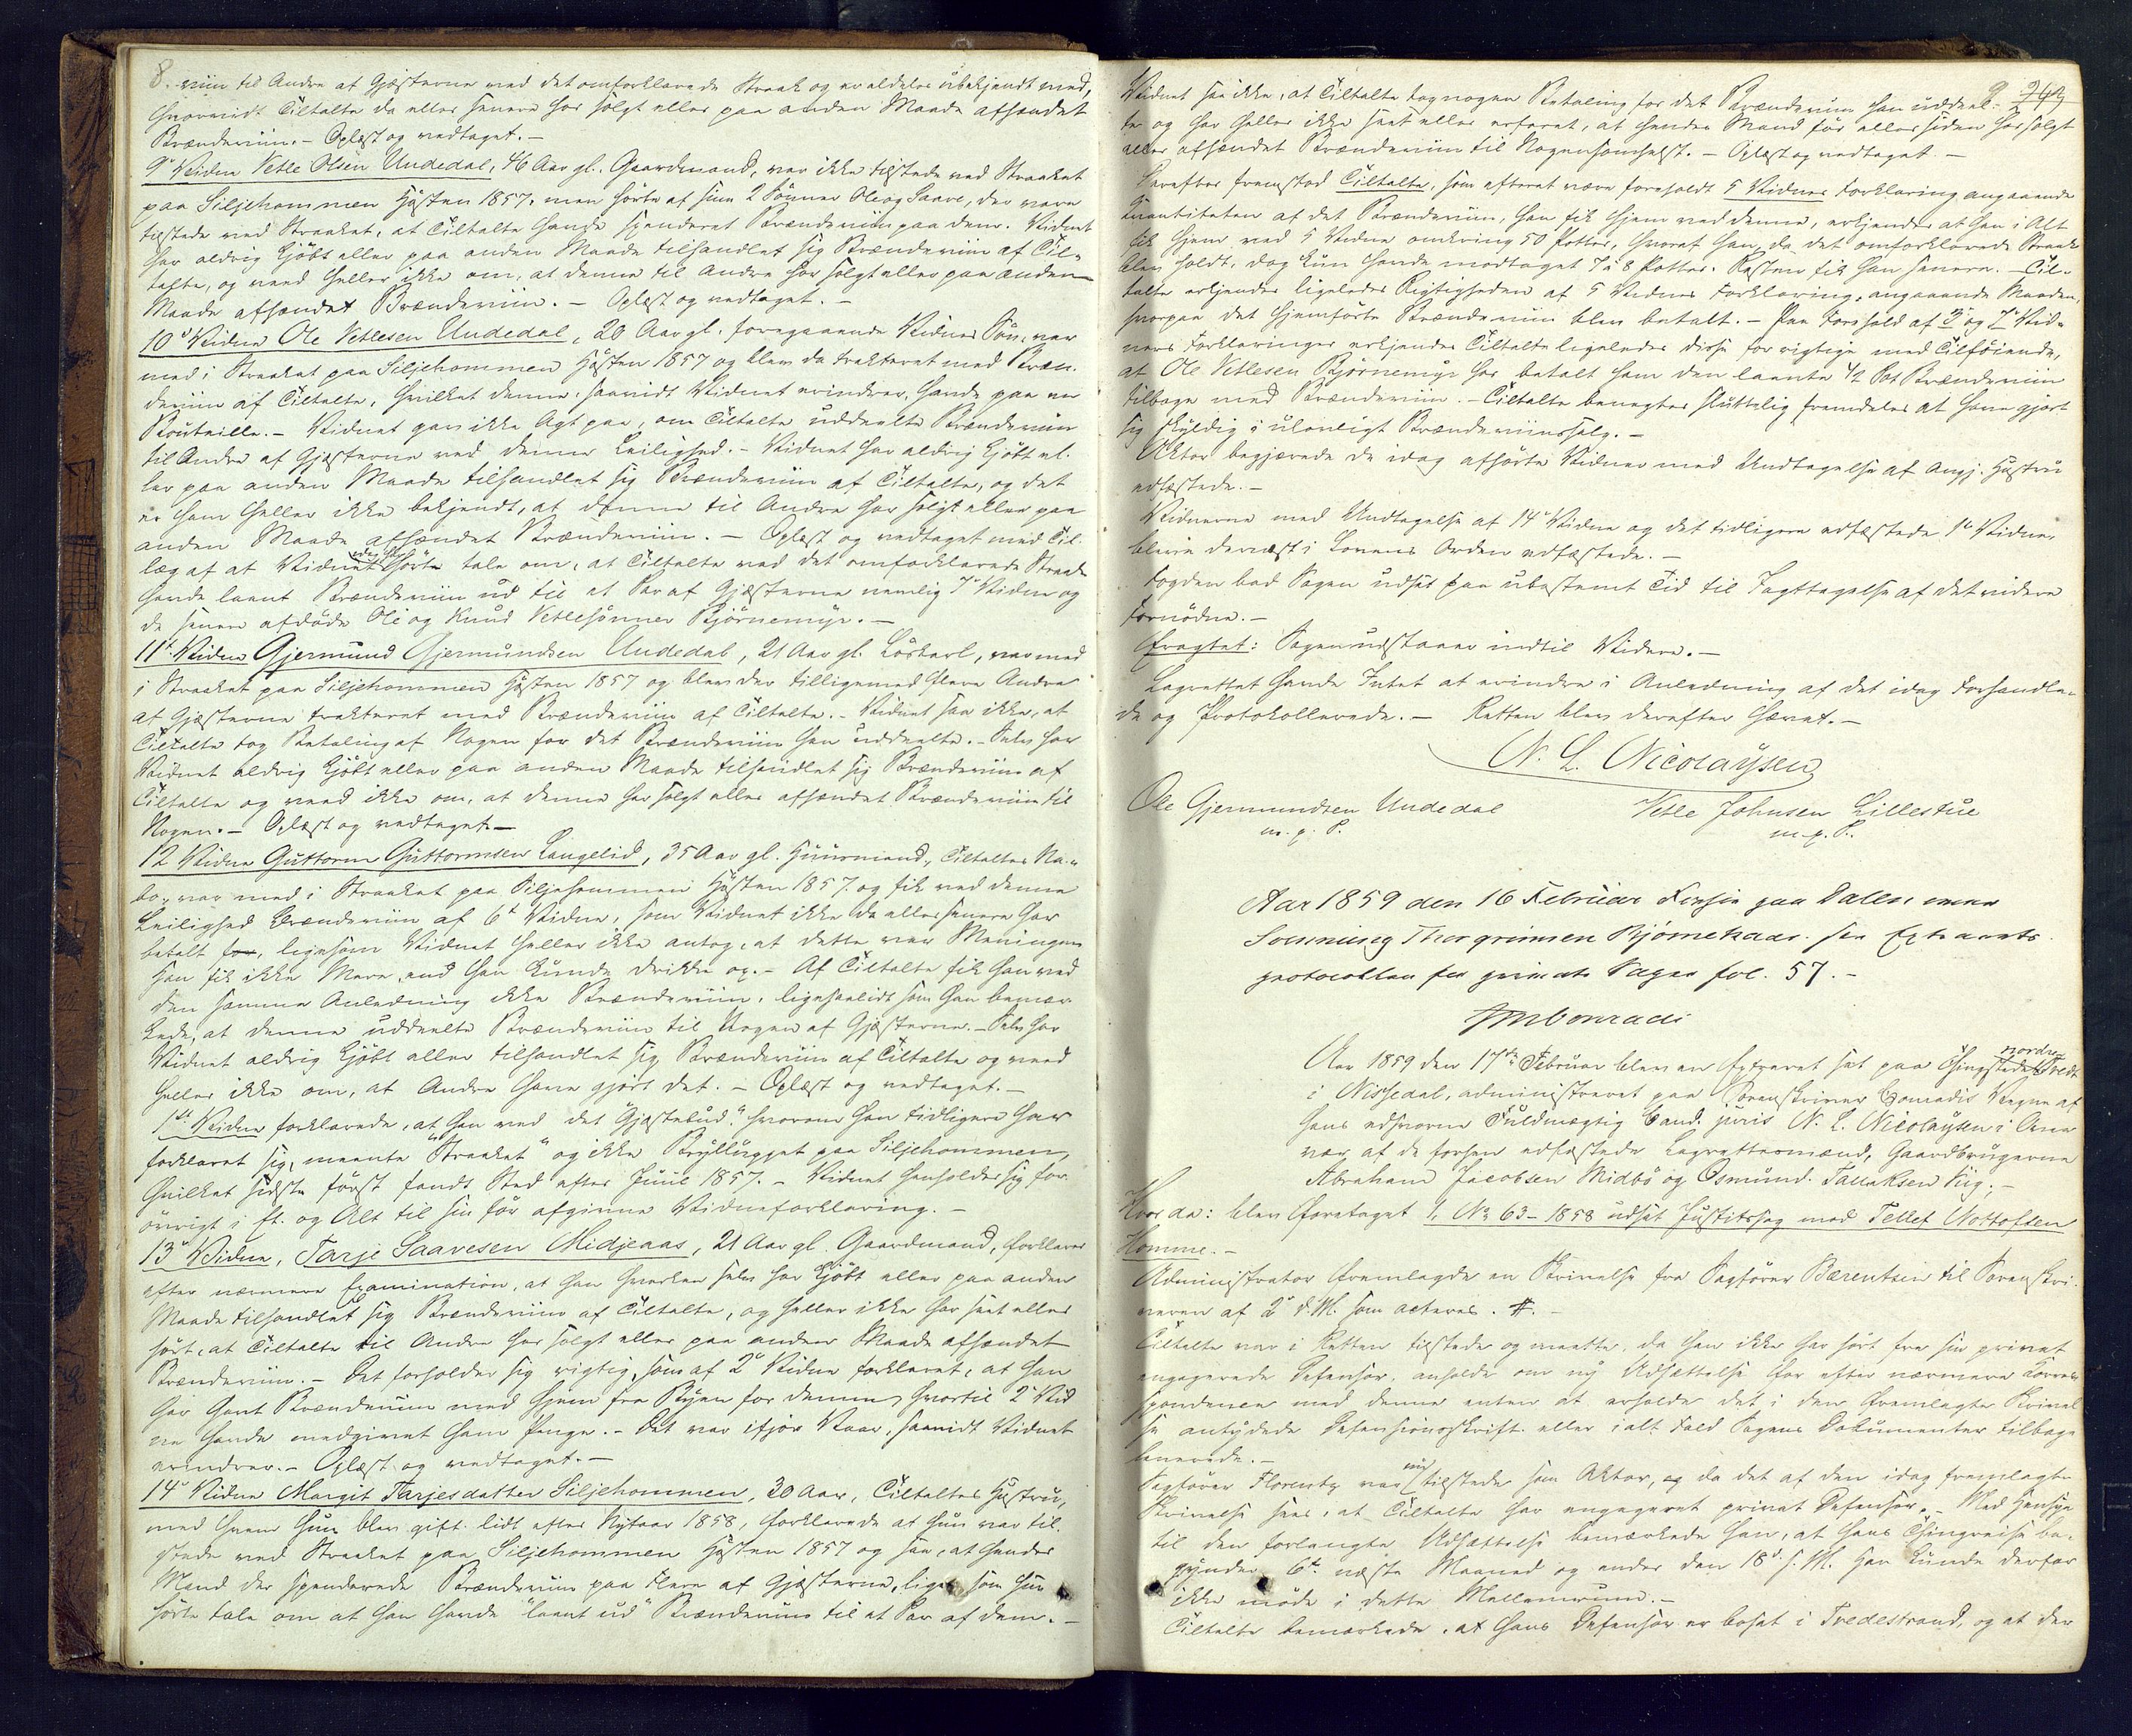 8.
viin til Andre af Gjæsterne ved det omforklarede Straak og er aldeles ubekjendt med,
hvorvidt Tiltalte da eller senere har solgt eller paa anden Maade afhændet
Brændeviin. – Oplæst og vedtaget. –
9de Vidne Vetle Olsen Undedal, 46 Aar gl. Gaardmand, var ikke tilstede ved Straaket
paa Siljehommen Høsten 1857, men hørte af sine 2 Sønner Ole og Saave, der vare
tilstede ved Straaket, at Tiltalte havde spenderet Brændeviin paa dem. Vidnet
har aldrig kjøbt eller paa anden Maade tilhandlet sig Brændeviin af Til-
talte, og veed heller ikke om, at denne til Andre har solgt eller paa anden
Maade afhændet Brændeviin. – Oplæst og vedtaget. –
10de Vidne Ole Vetlesen Undedal, 20 Aar gl. foregaaende Vidnes Søn, var
med i Straaket paa Siljehommen Høsten 1857 og blev da trakteret med Bræn-
deviin af Tiltalte, hvilket denne, saavidt Vidnet erindrer, havde paa en
Bouteille. – Vidnet gav ikke Agt paa, om Tiltalte uddeelte Brændeviin
til Andre af Gjæsterne ved denne Leilighed. – Vidnet har aldrig kjøbt el-
ler paa anden Maade tilhandlet sig Brændeviin af Tiltalte, og det
er ham heller ikke bekjendt, at denne til Andre har solgt eller paa
anden Maade afhændet Brændeviin. – Oplæst og vedtaget med Til-
læg af at Vidnet hørte tale om, at Tiltalte ved det omforklarede Straak
havde laant Brændeviin ud til et Par af Gjæsterne nemlig 7de Vidne og
de senere afdøde Ole og Knud Vetlesønner Bjørnemyr. –
11te Vidne Gjermund Gjermundsen Undedal, 21 Aar gl. Løskarl, var med
i Straaket paa Siljehommen Høsten 1857 og blev der tilligemed flere Andre
af Gjæsterne trakteret med Brændeviin af Tiltalte. – Vidnet saa ikke, at
Tiltalte tog Betaling af Nogen for det Brændeviin han uddeelte. – Selv har
Vidnet aldrig kjøbt eller paa anden Maade tilhandlet sig Brændeviin af
Tiltalte og veed ikke om, at denne har solgt eller afhændet Brændeviin til
Nogen. – Oplæst og vedtaget. –
12 Vidne Guttorm Guttormsen Langelid, 35 Aar gl. Huusmand, Tiltaltes Na-
bo, var med i Straaket paa Siljehommen Høsten 1857 og fik ved denne
Leilighed Brændeviin af 6te Vidne, som Vidnet ikke da eller senere har
betalt for, ligesom Vidnet heller ikke antog, at dette var Meningen
Han fik ikke Mere, end han kunde drikke op. – Af Tiltalte fik han ved
den samme Anledning ikke Brændeviin, ligesaalidt som han bemær-
kede, at denne uddeelte Brændeviin til Nogen af Gjæsterne. – Selv har
Vidnet aldrig kjøbt eller tilhandlet sig Brændeviin af Tiltalte og veed
heller ikke om, at Andre have gjort det. – Oplæst og vedtaget. –
1ste Vidne forklarede, at han ved det "Gjæstebud" hvorom han tidligere har
forklaret sig, meente "Straaket" og ikke Brylluppet paa Siljehommen,
hvilket sidste først fandt Sted efter Juul 1857. – Vidnet henholder sig for-
øvrigt i Et og Alt til sin før afgivne Vidneforklaring. –
13de Vidne, Tarje Saavesen Midjeaas, 21 Aar gl. Gaardmand, forklarer
efter nærmere Examination, at han hverken selv har kjøbt eller paa anden
Maade tilhandlet sig Brændeviin af Tiltalte, og heller ikke har seet eller
hørt, at Tiltalte til Andre har solgt eller paa anden Maade afhændet
Brændeviin. – Det forholder sig rigtig, som af 2det Vidne forklaret, at han
har havt Brændeviin med hjem fra Byen for denne, hvortil 2det Vid-
ne havde medgivet ham Penge. – Det var ifjor Vaar, saavidt Vidnet
erindrer. – Oplæst og vedtaget. –
14de Vidne Margit Tarjesdatter Siljehommen, 20 Aar, Tiltaltes Hustru,
med hvem hun blev gift lidt efter Nytaar 1858, forklarede at hun var til-
stede ved Straaket paa Siljehommen Høsten 1857 og saa, at hendes
Mand der spenderede Brændeviin paa Flere af Gjæsterne, lige som hun
hørte tale om at han havde "laant ud" Brændeviin til et Par af dem. –
9.
Vidnet saa ikke, at Tiltalte tog nogen Betaling for det Brændeviin han uddeel-
te og har heller ikke seet eller erfaret, at hendes Mand før eller siden har solgt
eller afhændet Brændeviin til Nogensomhelst. – Oplæst og vedtaget. –
Derefter fremstod Tiltalte, som efterat være foreholdt 5 Vidnes Forklaring angaaende
Quantiteten af det Brændeviin, han fik hjem med denne, erkjender at han i Alt
fik hjem med 5 Vidne omkring 50 Potter, hvoraf han, da det omforklarede Straak
blev holdt, dog kun havde modtaget 7 á 8 Potter. Resten fik han senere. – Til-
talte erkjender ligeledes Rigtigheden af 5 Vidnes Forklaring angaaende Maaden,
hvorpaa det hjemførte Brændeviin blev betalt. – Paa Forehold af 3de og 7de Vid-
ners Forklaringer erkjender Tiltalte ligeledes disse for rigtige med Tilføiende,
at Ole Vetlesen Bjørnemyr har betalt ham den laante ½ Pot Brændeviin
tilbage med Brændeviin. – Tiltalte benegter sluttelig fremdeles at have gjort
sig skyldig i ulovligt Brændeviinssalg. –
Aktor begjærede de idag afhørte Vidner med Undtagelse af Angj. Hustru
edfæstede. –
Vidnerne med Undtagelse af 14de Vidne og det tidligere edfæstede 1ste Vidne,
bleve dernæst i Lovens Orden edfæstede. –
Fogden bad Sagen udsat paa ubestemt Tid til Iagttagelse af det videre
Fornødne. –
Eragtet: Sagen udstaaer indtil Videre. –
Lagrettet havde Intet at erindre i Anledning af det idag Forhandle-
de og Protokollerede. – Retten blev derefter hævet. –
N. L. Nicolaysen
Ole Gjermundsen Undedal Vetle Johnsen Lillestue
m. p. P. m. p. P.
Aar 1859 den 16 Februar Forsje paa Dalen
Svenning Thorgrimsen Bjørnekaas. see Extraretts
protocollen for private Sager fol. 57. –
Aar 1859 den 17de Februar blev en Extraret sat paa Thingstedet nordre Tvedt
i Nissedal, administreret paa Sorenskriver Conradis Vegne af
hans edsvorne Fuldmægtig Cand. juris N. L. Nicolaysen i Over-
vær af de forhen edfæstede Lagrettesmænd, Gaardbrugerne
Abraham Jacobsen Midbø og Osmund Tallaksen Vig. –
Hvor da: blev foretaget 1, No 63 – 1858 udsat Justitssag mod Tellef Nottolfsen
Homme. –
Administrator fremlagde en Skrivelse fra Sagfører Bærentsen til Sorenskri-
veren af 2den d. M. som acteres. #. –
Tiltalte var i Retten tilstede og maatte, da han ikke har hørt fra sin privat
engagerede Defensor, anholde om ny Udsættelse for efter nærmere Korre-
spondence med denne enten at erholde det i den fremlagte Skrivel-
se antydede Defensionsskrift eller ialt Fald Sagens Dokumenter tilbage
leverede. –
Sagfører Florentz var nu tilstede som Aktor, og da det af den idag fremlagte
Skrivelse sees, at Tiltalte har engageret privat Defensor. – Med Hensyn
til den forlangte Udsættelse bemærkede han, at hans Thingreise be-
gynder 6te næste Maaned og ender den 18de s. M. han kunde derfor
ikke møde i dette Mellemrum. –
Tiltalte bemærkede, at hans Defensor er bosat i Tvedestrand, og at der